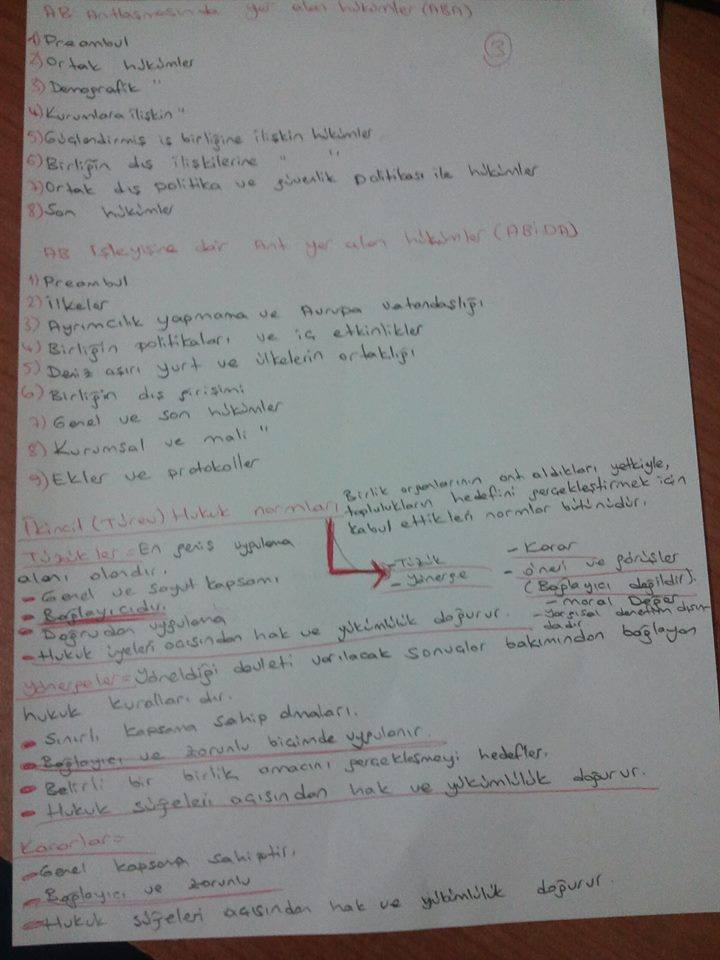 AB Antlaşmasında yer alan hükümler (ABA)
3
1) Preambul
2) Ortak hükümler
3) Demografik "
4) Kurumlara ilişkin "
5) Güçlendirmiş iş birliğine ilişkin hükümler
6) Birliğin dış ilişkilerine " "
7) Ortak dış politika ve güvenlik politikası ile hükümler
8) Son hükümler
AB İşleyişine dair Ant yer alan hükümler (ABİDA)
1) Preambul
2) İlkeler
3) Ayrımcılık yapmama ve Avrupa vatandaşlığı
4) Birliğin politikaları ve iç etkinlikler
5) Deniz aşırı yurt ve ülkelerin ortaklığı
6) Birliğin dış girişimi
7) Genel ve son hükümler
8) Kurumsal ve mali "
9) Ekler ve protokoller
İkincil (Türev) Hukuk normları
Birlik organlarının ant aldıkları yetkiyle,
toplulukların hedefini gerçekleştirmek için
kabul ettikleri normlar bütünüdür.
- Tüzik
- Yönerge
- Karar
- öneri ve görüşler
(Bağlayıcı değildir).
- moral Değer
- Yargısal denetim dışın
dadır
Tüzükler = En geniş uygulama
alanı olandır.
- Genel ve soyut kapsamı
- Bağlayıcıdır.
- Doğrudan uygulama
- Hukuk üyeleri açısından hak ve yükümlülük doğurur.
Yönergeler = Yöneldiği devleti varılacak sonuçlar bakımından bağlayan
hukuk kurallarıdır.
- Sınırlı kapsama sahip olmaları.
- Bağlayıcı ve zorunlu biçimde uygulanır.
- Belirli bir birlik amacını gerçekleşmeyi hedefler.
- Hukuk süjeleri açışından hak ve yükümlülük doğurur.
Kararlar =
- Genel kapsama sahiptir.
- Bağlayıcı ve zorunlu
- Hukuk süjeleri açışından hak ve yükümlülük doğurur.